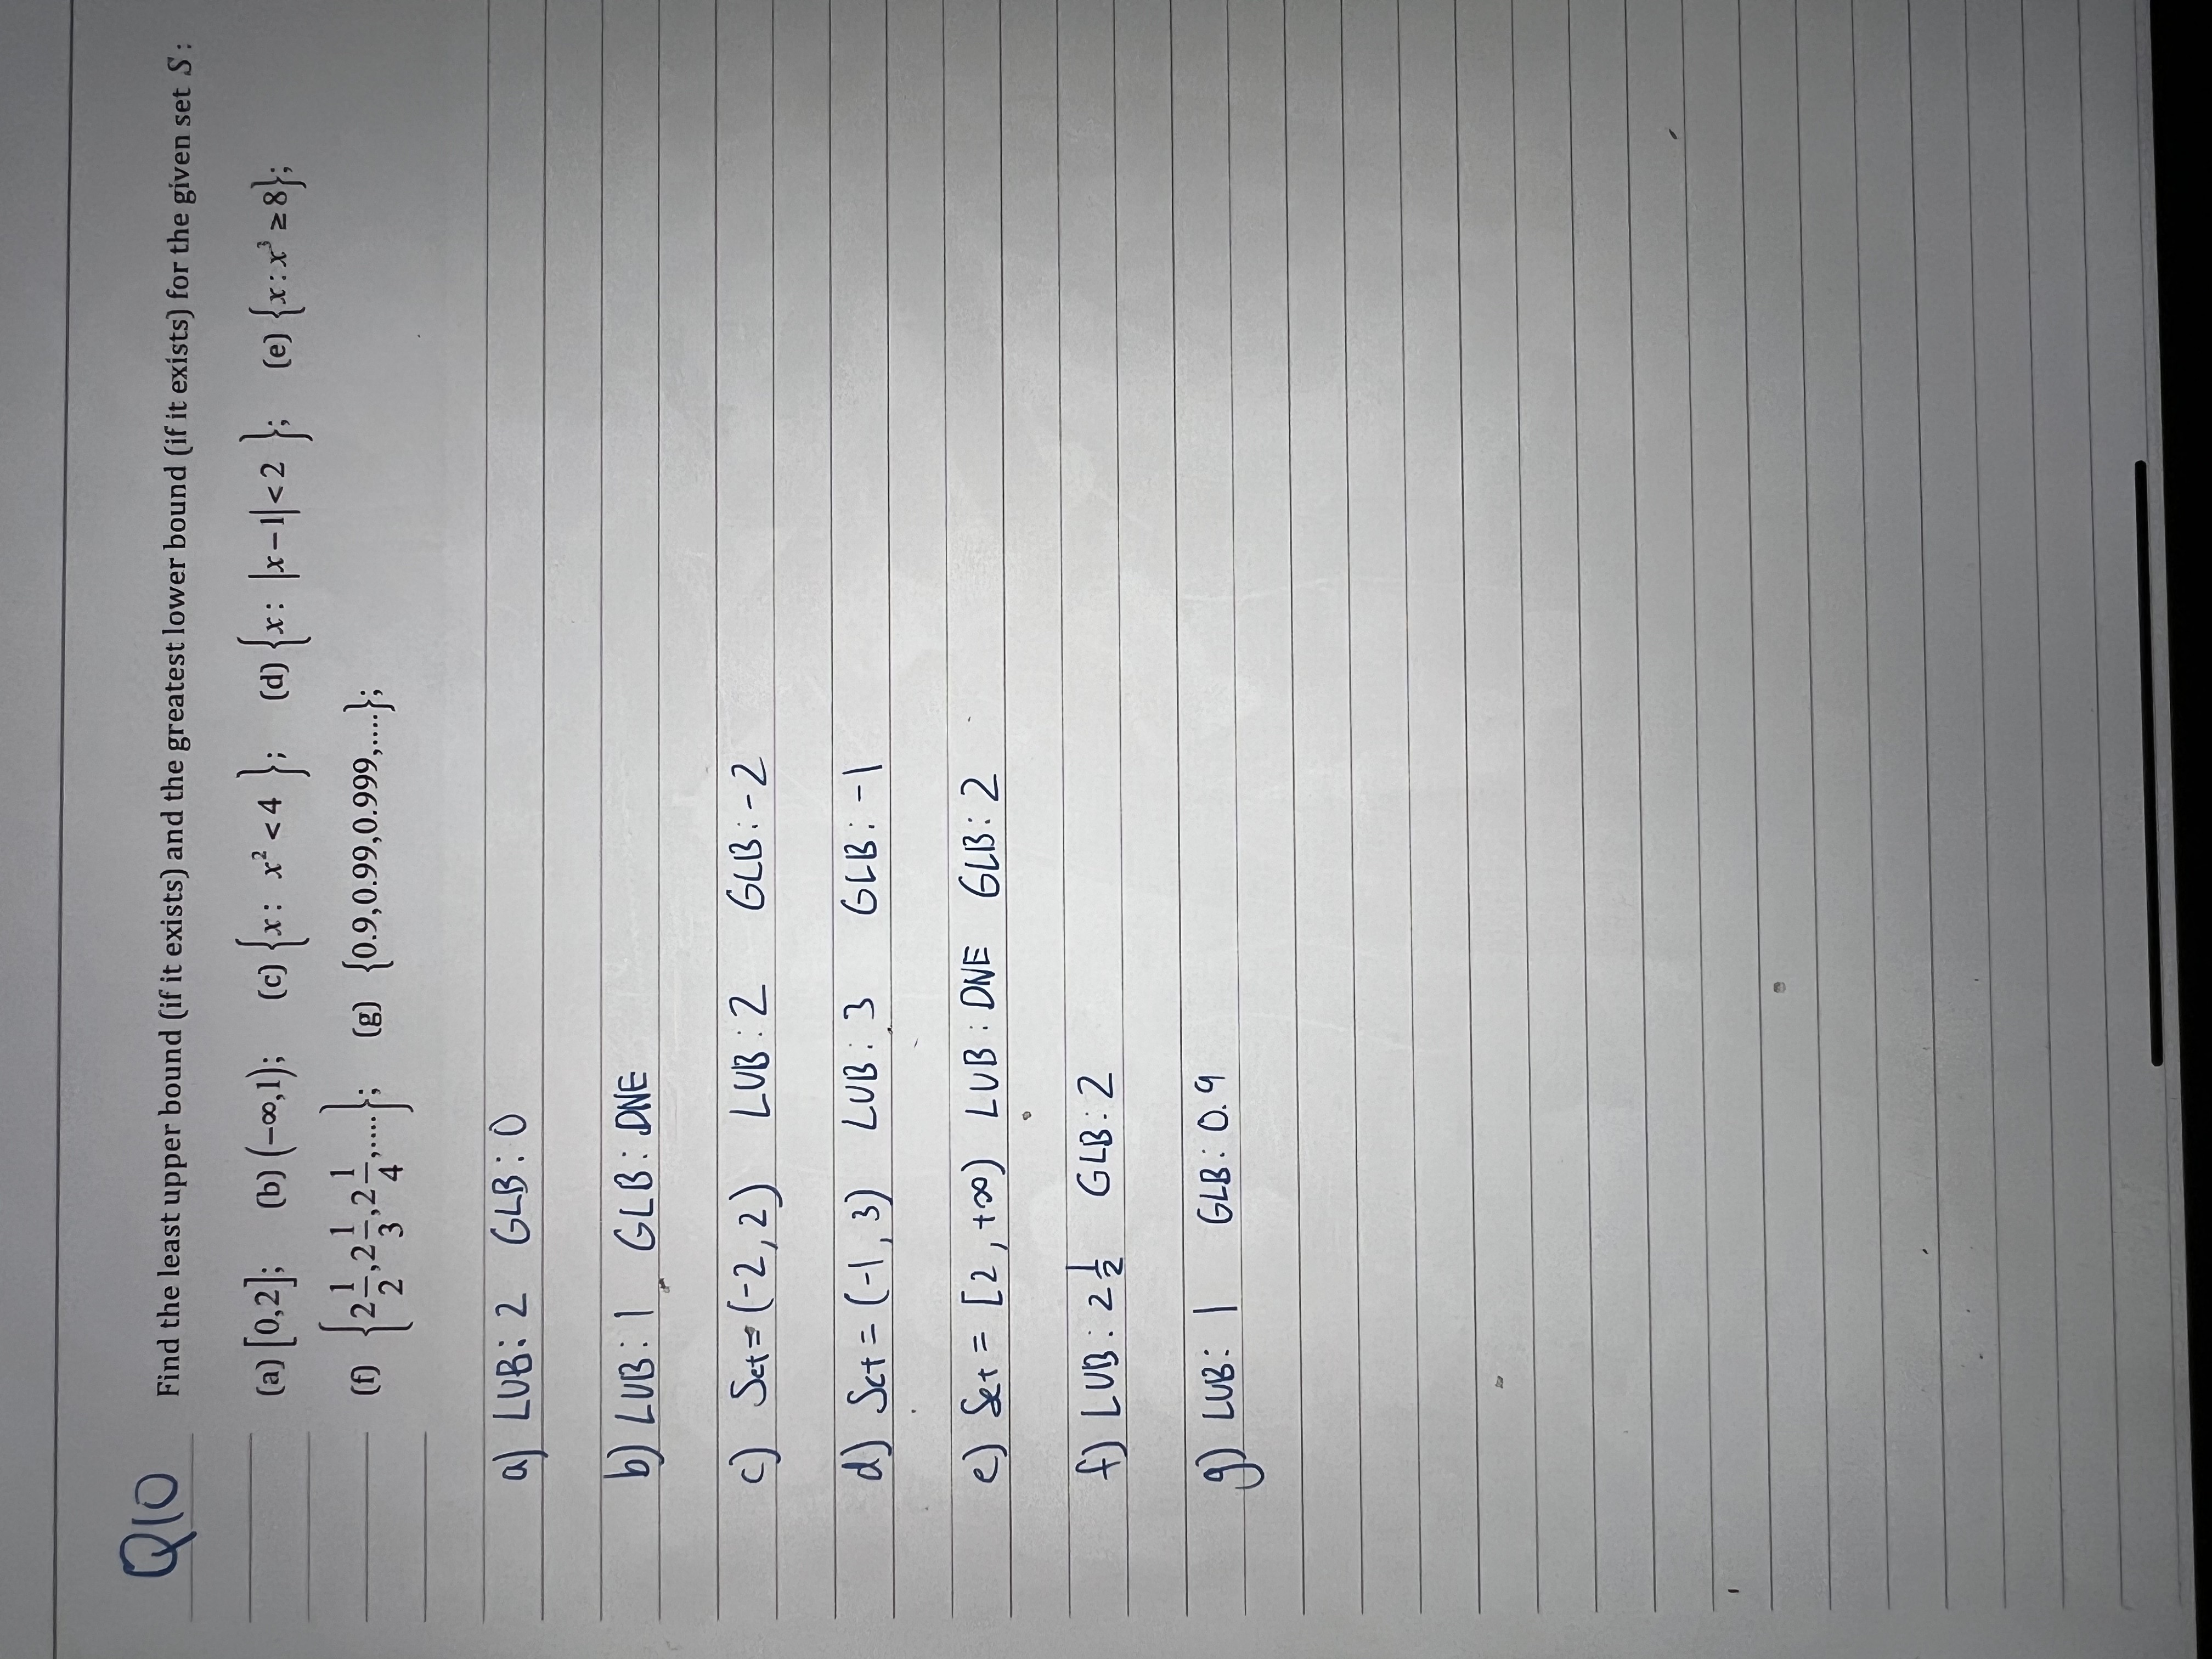 Q10
Find the least upper bound (if it exists) and the greatest lower bound (if it exists) for the given set S:
(a) [0,2]; (b) (−∞,1); (c) {x: x² < 4 }; (d) {x: |x−1| < 2 }; (e) {x: x³ ≥ 8};
(f) {2 1/2, 2 1/3, 2 1/4, ....}; (g) {0.9,0.99,0.999,....};
a) LUB: 2 GLB: 0
b) LUB: 1 GLB: DNE
c) Set = (-2, 2) LUB: 2 GLB: -2
d) Set = (-1, 3) LUB: 3 GLB: -1
e) Set = [2, +∞) LUB: DNE GLB: 2
f) LUB: 2 1/2 GLB: 2
g) LUB: 1 GLB: 0.9